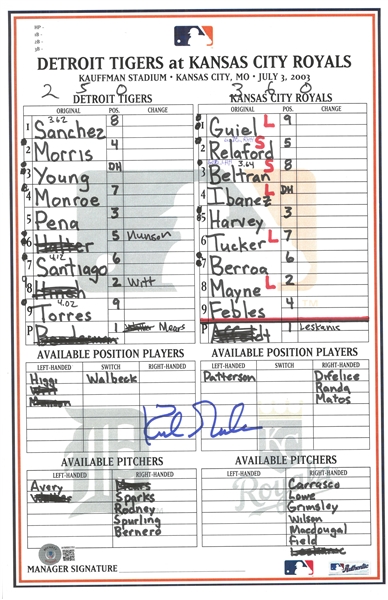 DETROIT TIGERS at KANSAS CITY ROYALS
KAUFFMAN STADIUM • KANSAS CITY, MO • JULY 3, 2003
2 5 0 3 6 0
DETROIT TIGERS KANSAS CITY ROYALS
ORIGINAL POS. CHANGE ORIGINAL POS. CHANGE
3.62
1 Sanchez 8
2 Morris 4
3 Young DH
4 Monroe 7
5 Pena 3
6 Halter 5 Munson
4.12
7 Santiago 6
8 Hinch 2 Witt
4.02
9 Torres 9
P Bonderman 1 Walker Mears
1 Guiel L 9
2 Relaford S 5
3.64
3 Beltran S 8
4 Ibanez L DH
5 Harvey 3
6 Tucker L 7
7 Berroa 6
8 Mayne L 2
9 Febles 4
P Affeldt 1 Leskanic
AVAILABLE POSITION PLAYERS AVAILABLE POSITION PLAYERS
LEFT-HANDED SWITCH RIGHT-HANDED LEFT-HANDED SWITCH RIGHT-HANDED
Higgi Walbeck
Witt
Munson
Patterson Difelice
Randa
Matos
AVAILABLE PITCHERS AVAILABLE PITCHERS
LEFT-HANDED RIGHT-HANDED LEFT-HANDED RIGHT-HANDED
Avery
Walker
Mears
Sparks
Rodney
Spurling
Bernero
Carrasco
Lowe
Grimsley
Wilson
Macdougal
Field
Leskanic
Royals
KC
MANAGER SIGNATURE
Authentic